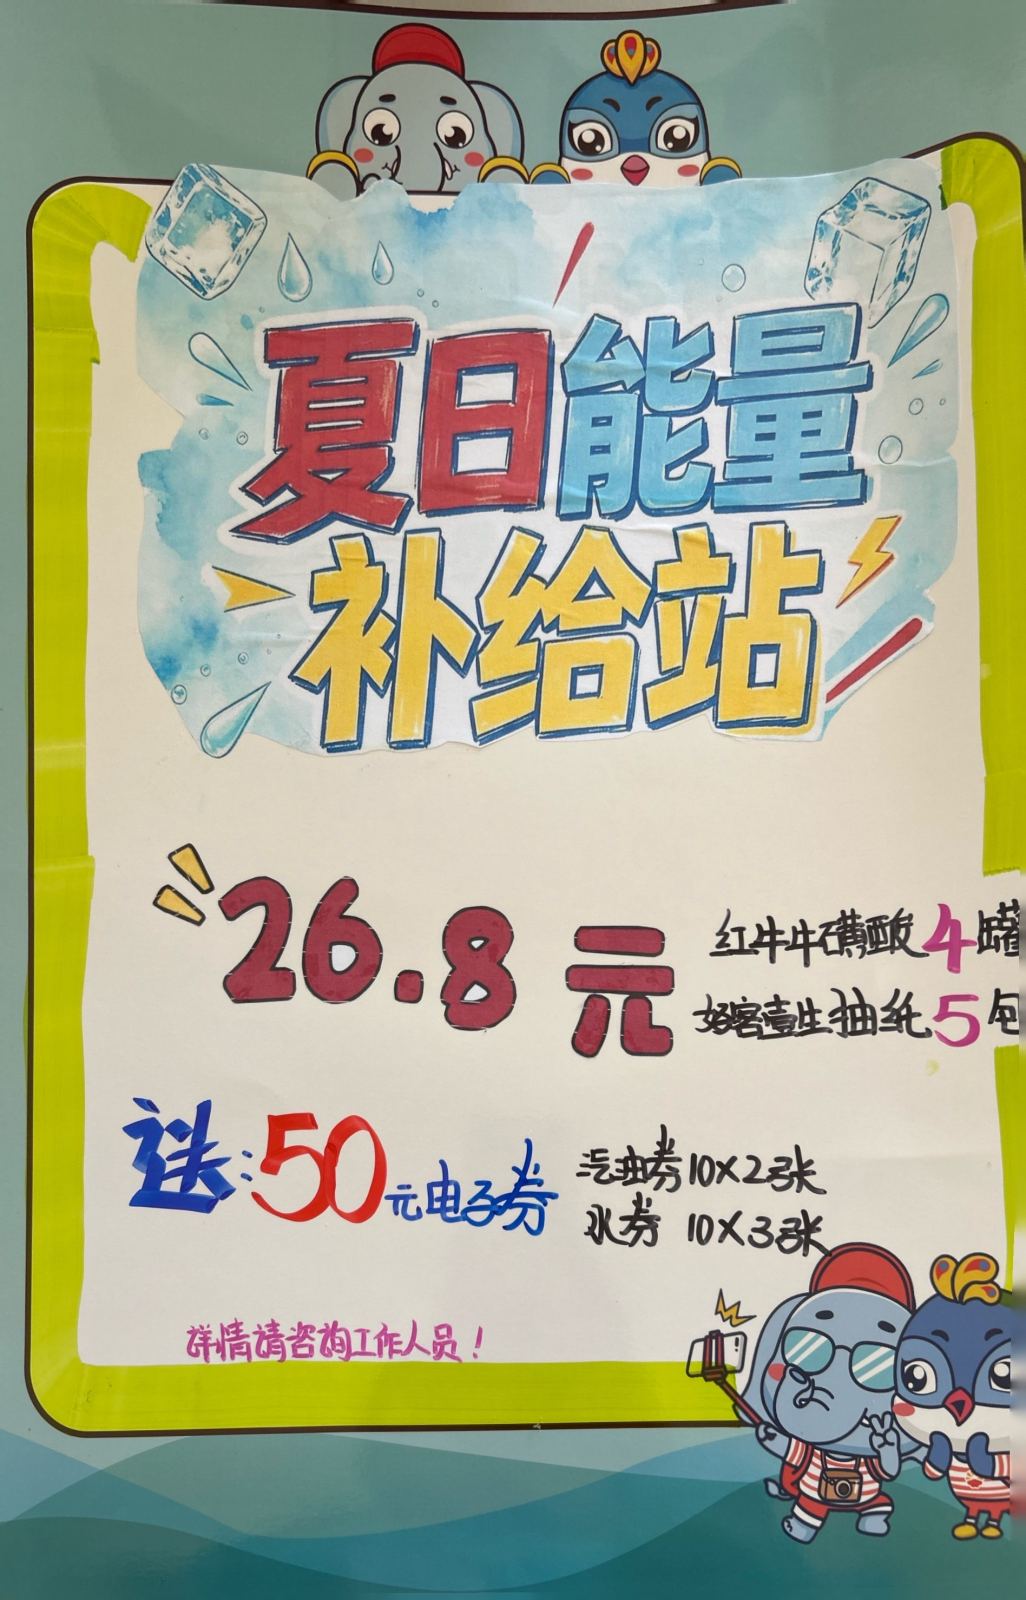 夏日能量
补给站
26.8元
红牛牛磺酸4罐
好客壹生抽纸5包
送:50元电子券
汽油券10×2张
水券 10×3张
详情请咨询工作人员!